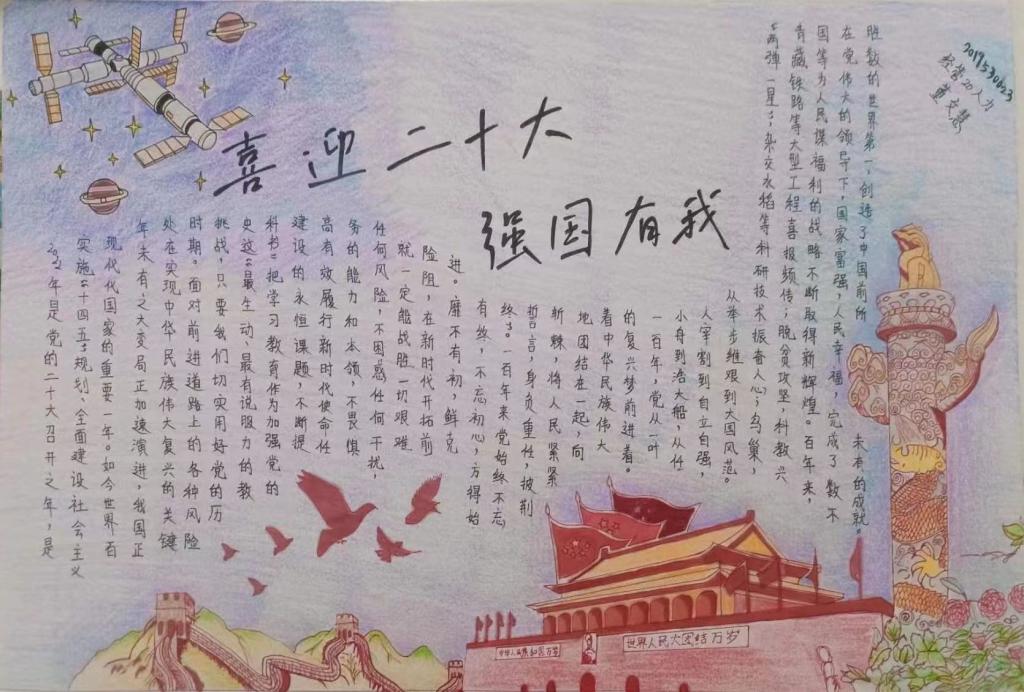 喜迎二十大
强国有我
2019530623
经管20人力
董文慧
2022年是党的二十大召开之年，是
实施“十四五”规划、全面建设社会主义
现代代国家的重要一年。如今世界百
年未有之大变局正加速演进，我国正
处在实现中华民族伟大复兴的关键
时期。面对前进道路上的各种风险
挑战，只要我们切实用好党的历
史这“最生动、最有说服力的教
科书”把学习教育作为加强党的
建设的永恒课题，不断提
高有效履行新时代使命任
务的能力和本领，不畏惧
任何风险，不困惑任何干扰，
就一定能战胜一切艰难
险阻，在新时代开拓前
进。靡不有初，鲜克
有终，不忘初心，方得始
终。一百年来党始终不忘
誓言，身负重任，披荆
斩棘，将人民紧紧
地团结在一起，向
着中华民族伟大
的复兴梦前进着。
一百年，党从一叶
小舟到浩大船，从任
人宰割到自立自强，
从举步维艰到大国风范。
“两弹一星”，杂交水稻等科研技术振奋人心；鸟巢，
青藏铁路等大型工程喜报频传；脱贫攻坚，科教兴
国等为人民谋福利的战略不断取得新辉煌。百年来，
在党伟大的领导下，国家富强，人民幸福，完成了数不
胜数的世界第一，创造了中国前所
未有的成就。
中华人民共和国万岁
世界人民大团结万岁